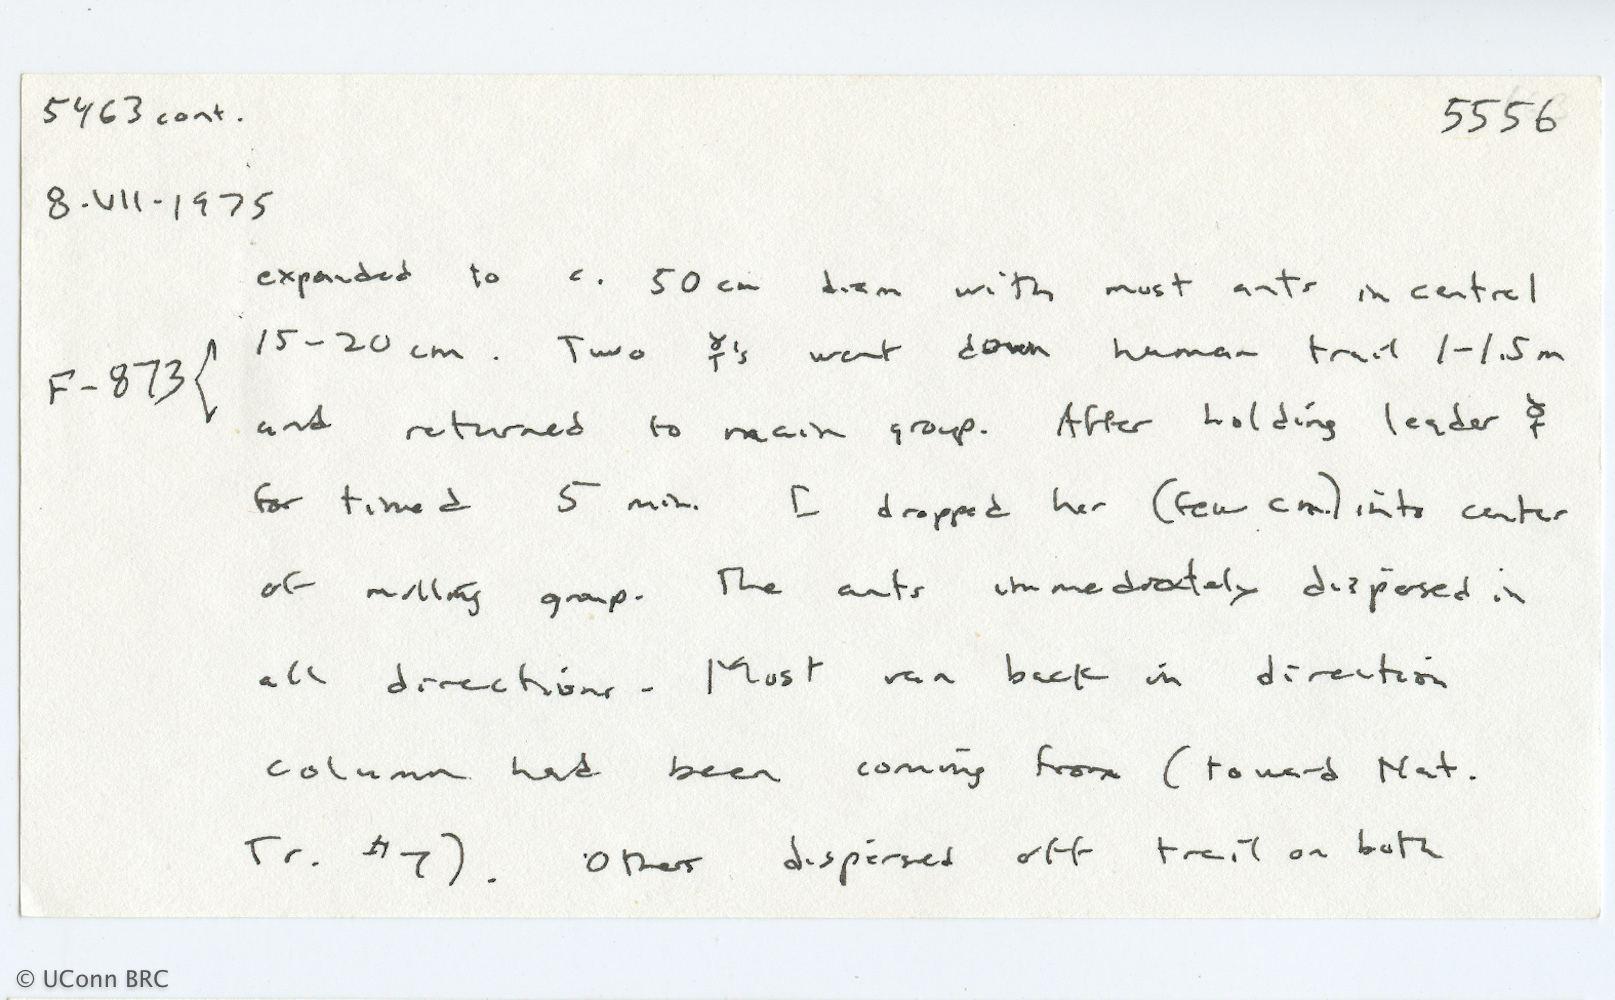 5463 cont.
5556
8-VII-1975
expanded to c. 50 cm diam with most ants in central
F-873 { 15-20 cm. Two ☿'s went down human trail 1-1.5 m
and returned to main group. After holding leader ☿
for timed 5 min. I dropped her (few cm.) into center
of milling group. The ants immediately dispersed in
all directions. Most ran back in direction
column had been coming from (toward Nat.
Tr. #7). Others dispersed off trail on both
© UConn BRC